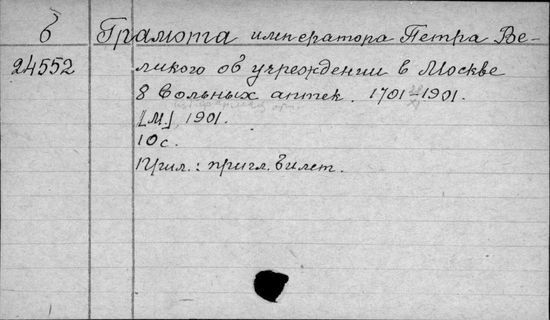 б
24552
Грамота императора Петра Ве-
ликого об учреждении в Москве
8 вольных аптек. 1701-1901.
[М.], 1901.
10с.
Прил.: пригл. билет.